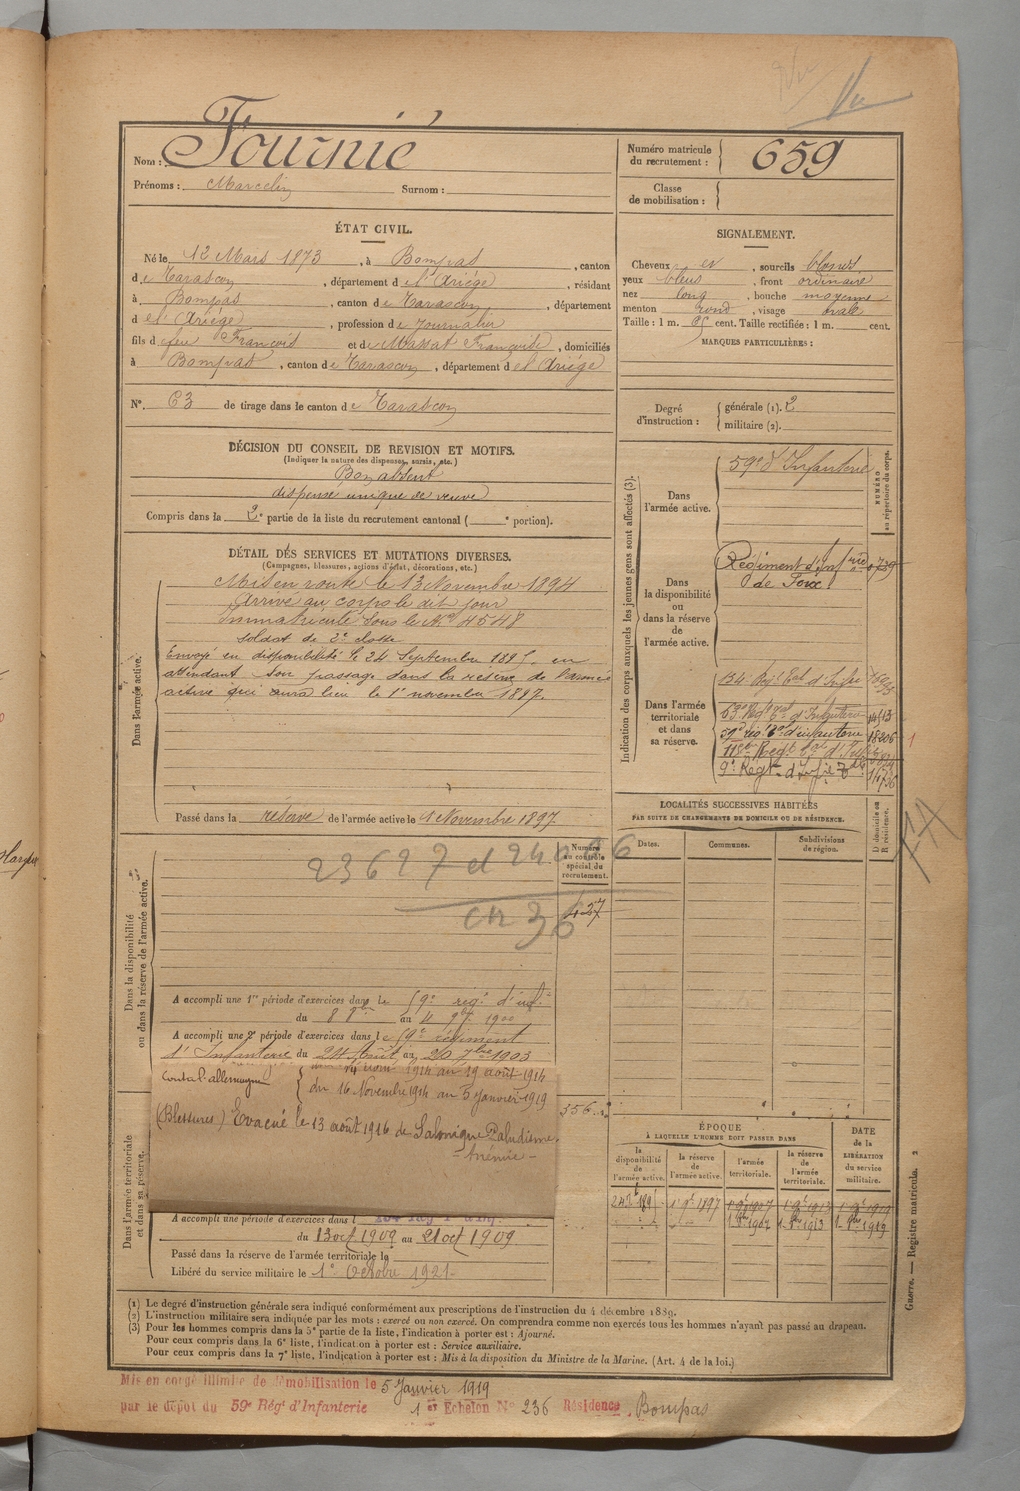 Vu
Nom : Fournié
Prénoms : Marcelin Surnom :
Numéro matricule du recrutement : 659
Classe de mobilisation :
ÉTAT CIVIL.
Né le 12 Mars 1873, à Bompas, canton
de Tarascon, département de l'Ariége, résidant
à Bompas, canton de Tarascon, département
de l'Ariége, profession de journalier
fils de feu François et de Massat Françoise, domiciliés
à Bompas, canton de Tarascon, département de l'Ariége
N°. 63 de tirage dans le canton de Tarascon
SIGNALEMENT.
Cheveux et, sourcils blonds
yeux bleus, front ordinaire
nez long, bouche moyenne
menton rond, visage ovale
Taille : 1 m. cent. Taille rectifiée : 1 m. cent.
MARQUES PARTICULIÈRES :
Degré d'instruction : générale (1). 2
militaire (2).
DÉCISION DU CONSEIL DE REVISION ET MOTIFS.
(Indiquer la nature des dispenses, sursis, etc.)
Bon absent
dispensé unique de veuve
Compris dans la 2e partie de la liste du recrutement cantonal ( e portion).
DÉTAIL DES SERVICES ET MUTATIONS DIVERSES.
(Campagnes, blessures, actions d'éclat, décorations, etc.)
Dans l'armée active.
Mis en route le 13 Novembre 1894
Arrivé au corps le dit jour
Immatriculé sous le No 4548
soldat de 2e classe
Envoyé en disponibilité le 24 Septembre 1895, en
attendant son passage dans la réserve de l'armée
active qui aura lieu le 1er novembre 1897.
Passé dans la réserve de l'armée active le 1 Novembre 1897
Indication des corps auxquels les jeunes gens sont affectés (3).
NUMÉRO au répertoire du corps.
Dans l'armée active.
59e d'Infanterie
Dans la disponibilité ou dans la réserve de l'armée active.
Régiment d'Infrie
de Foix
Dans l'armée territoriale et dans sa réserve.
134 Regt tal d'Infie
63e Regt tal d'Infanterie 14513
59e d'infanterie 18206
Regt tal d'Inf
9e Regt d'Infie
LOCALITÉS SUCCESSIVES HABITÉES
PAR SUITE DE CHANGEMENTS DE DOMICILE OU DE RÉSIDENCE.
Dates. Communes. Subdivisions de région. D domicile ou R résidence.
Dans la disponibilité ou dans la réserve de l'armée active.
Numéro au contrôle spécial du recrutement.
23627 et
en 36
427
A accompli une 1re période d'exercices dans le 59e reg.t d'inf.
du 8 8bre au 4 9bre 1900
A accompli une 2e période d'exercices dans le 59e régiment
d'Infanterie du 24 Août au 20 7bre 1903
Dans l'armée territoriale et dans sa réserve.
Contre l'allemagne
1914 au 19 août 1914
du 16 Novembre 1914 au 5 Janvier 1919
(Blessures) Evacué le 13 août 1916 de Salonique Paludisme,
- Anémie -
356
A accompli une période d'exercices dans l
du 13 oct 1909 au 21 oct 1909
Passé dans la réserve de l'armée territoriale le
Libéré du service militaire le 1er Octobre 1921
ÉPOQUE
À LAQUELLE L'HOMME DOIT PASSER DANS
la disponibilité de l'armée active. la réserve de l'armée active. l'armée territoriale. la réserve de l'armée territoriale.
DATE de la LIBÉRATION du service militaire.
1897
(1) Le degré d'instruction générale sera indiqué conformément aux prescriptions de l'instruction du 4 décembre 1889.
(2) L'instruction militaire sera indiquée par les mots : exercé ou non exercé. On comprendra comme non exercés tous les hommes n'ayant pas passé au drapeau.
(3) Pour les hommes compris dans la 5e partie de la liste, l'indication à porter est : Ajourné.
Pour ceux compris dans la 6e liste, l'indication à porter est : Service auxiliaire.
Pour ceux compris dans la 7e liste, l'indication à porter est : Mis à la disposition du Ministre de la Marine. (Art. 4 de la loi.)
Guerre. — Registre matricule. 2
Mis en congé illimité de démobilisation le 5 Janvier 1919
par le dépôt du 59e Régt d'Infanterie 1er Echelon N° 236 Résidence Bompas